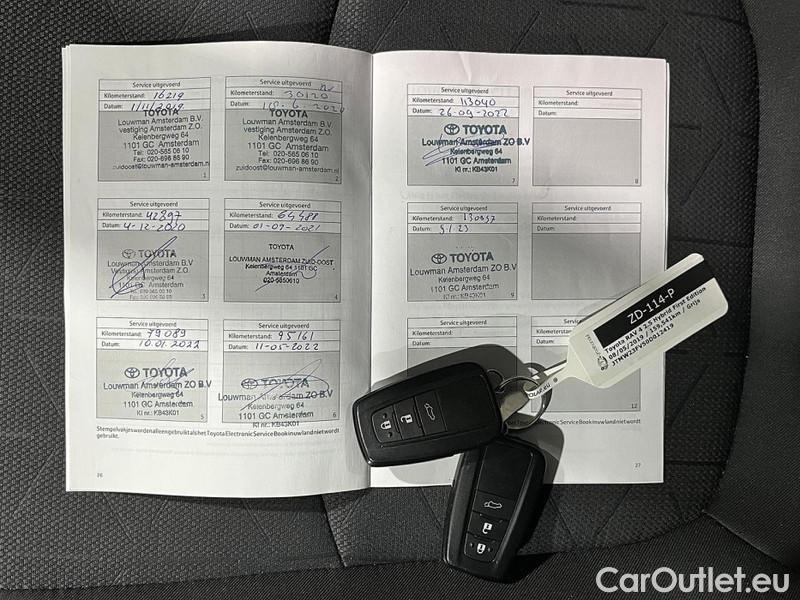 Service uitgevoerd
Kilometerstand: 16219
Datum: 1/11/2019
TOYOTA
Louwman Amsterdam B.V.
vestiging Amsterdam Z.O.
Keienbergweg 64
1101 GC Amsterdam
Tel: 020-565 06 10
Fax: 020-696 86 90
zuidoost@louwman-amsterdam.nl
1
Service uitgevoerd
Kilometerstand: 30120
Datum:
TOYOTA
Louwman Amsterdam B.V.
vestiging Amsterdam Z.O.
Keienbergweg 64
1101 GC Amsterdam
Tel: 020-565 06 10
Fax: 020-696 86 90
zuidoost@louwman-amsterdam.nl
2
Service uitgevoerd
Kilometerstand: 42897
Datum: 4-12-2020
TOYOTA
Louwman Amsterdam B.V.
Vestiging Amsterdam Z.O.
Keienbergweg 64
1101 GC Amsterdam
3
Service uitgevoerd
Kilometerstand: 64488
Datum: 01-09-2021
TOYOTA
LOUWMAN AMSTERDAM ZUID-OOST
Keienbergweg 64 1101 GC
Amsterdam
020-5650610
4
Service uitgevoerd
Kilometerstand: 79089
Datum: 10.01.2022
TOYOTA
Louwman Amsterdam ZO B.V
Keienbergweg 64
1101 GC Amsterdam
Kl nr.: KB43K01
5
Service uitgevoerd
Kilometerstand: 95161
Datum: 11-05-2022
TOYOTA
Louwman Amsterdam ZO B.V
Keienbergweg 64
1101 GC Amsterdam
Kl nr.: KB43K01
6
Stempelvakjes worden alleen gebruikt als het Toyota Electronic Service Book in uw land niet wordt
gebruikt.
26
Service uitgevoerd
Kilometerstand: 113040
Datum: 26-09-2022
TOYOTA
Louwman Amsterdam ZO B.V
Keienbergweg 64
1101 GC Amsterdam
Kl nr.: KB43K01
7
Service uitgevoerd
Kilometerstand:
Datum:
8
Service uitgevoerd
Kilometerstand:
Datum:
TOYOTA
Louwman Amsterdam ZO B.V
Keienbergweg 64
1101 GC Amsterdam
Kl nr.: KB43K01
9
Service uitgevoerd
Kilometerstand:
Datum:
Service uitgevoerd
Kilometerstand:
12
in uw land niet wordt
27
ZD-114-P
Toyota RAV 4 2.5 Hybrid First Edition
08/05/2019 / 159.541km / Grijs
JTMW23FV500012419
CarOutlet.eu